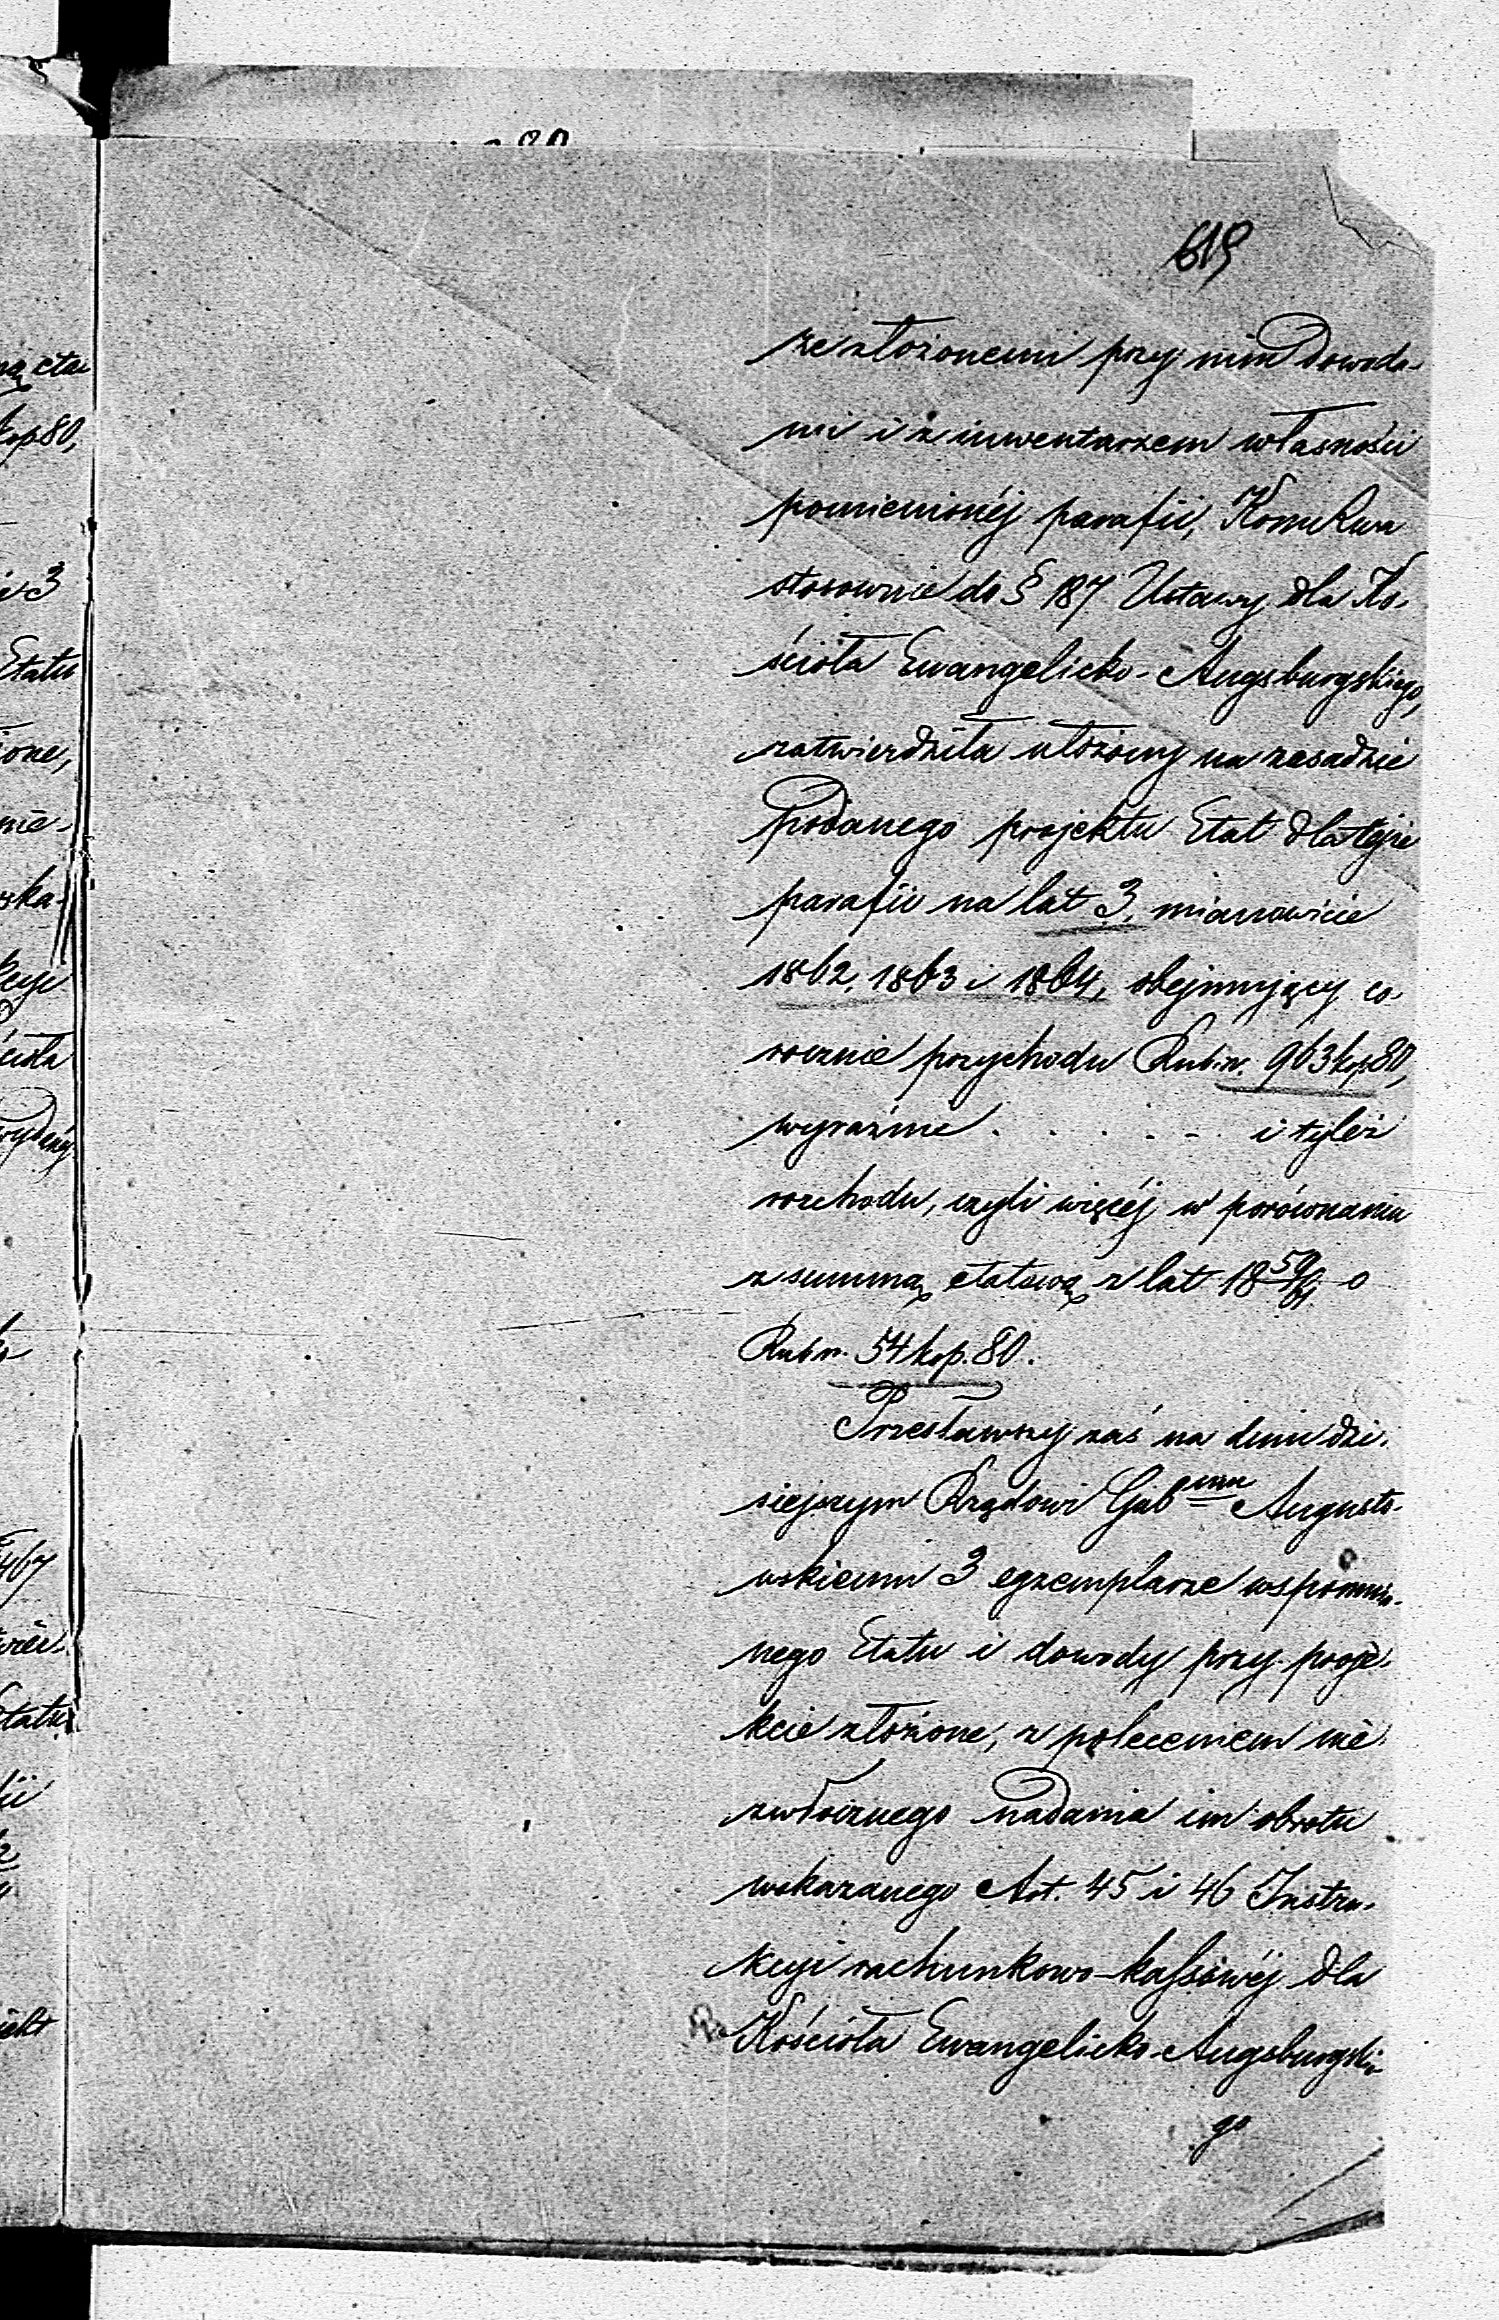 619
ze złożonemi przy nim Dowoda-
mi i z inwentarzem własności
pomienionéj parafii,
stosownie do § 187 Ustawy dla Ko-
ścioła Ewangelicko-Augsburgskiego,
zatwierdziła ułożony na zasadzie
Podanego projektu Etat dla tejże
parafii na lat 3, mianowicie
1862, 1863 i 1864, obejmujący co-
rocznie przychodu Rub.sr. 963 kop. 80,
wyraźnie . . . . . . i tyleż
rozchodu, czyli więcéj w porównaniu
z summą etatową z lat 18 59/61 o
Rub sr. 54 kop. 80.
Przesławszy zaś na dniu dzi-
siejszym Rządowi Gub Augusto-
wskiemu 3 egzemplarze wspomnio-
nego Etatu i dowody przy proje-
kcie złożone, z poleceniem nie-
zwłocznego nadania im obrotu
wskazanego Art. 45 i 46 Instru-
kcyi rachunkowo-kassowéj dla
Kościoła Ewangelicko-Augsburgskie-
go
ną eta-
kop 80,
i 3
Etatu
nie-
467